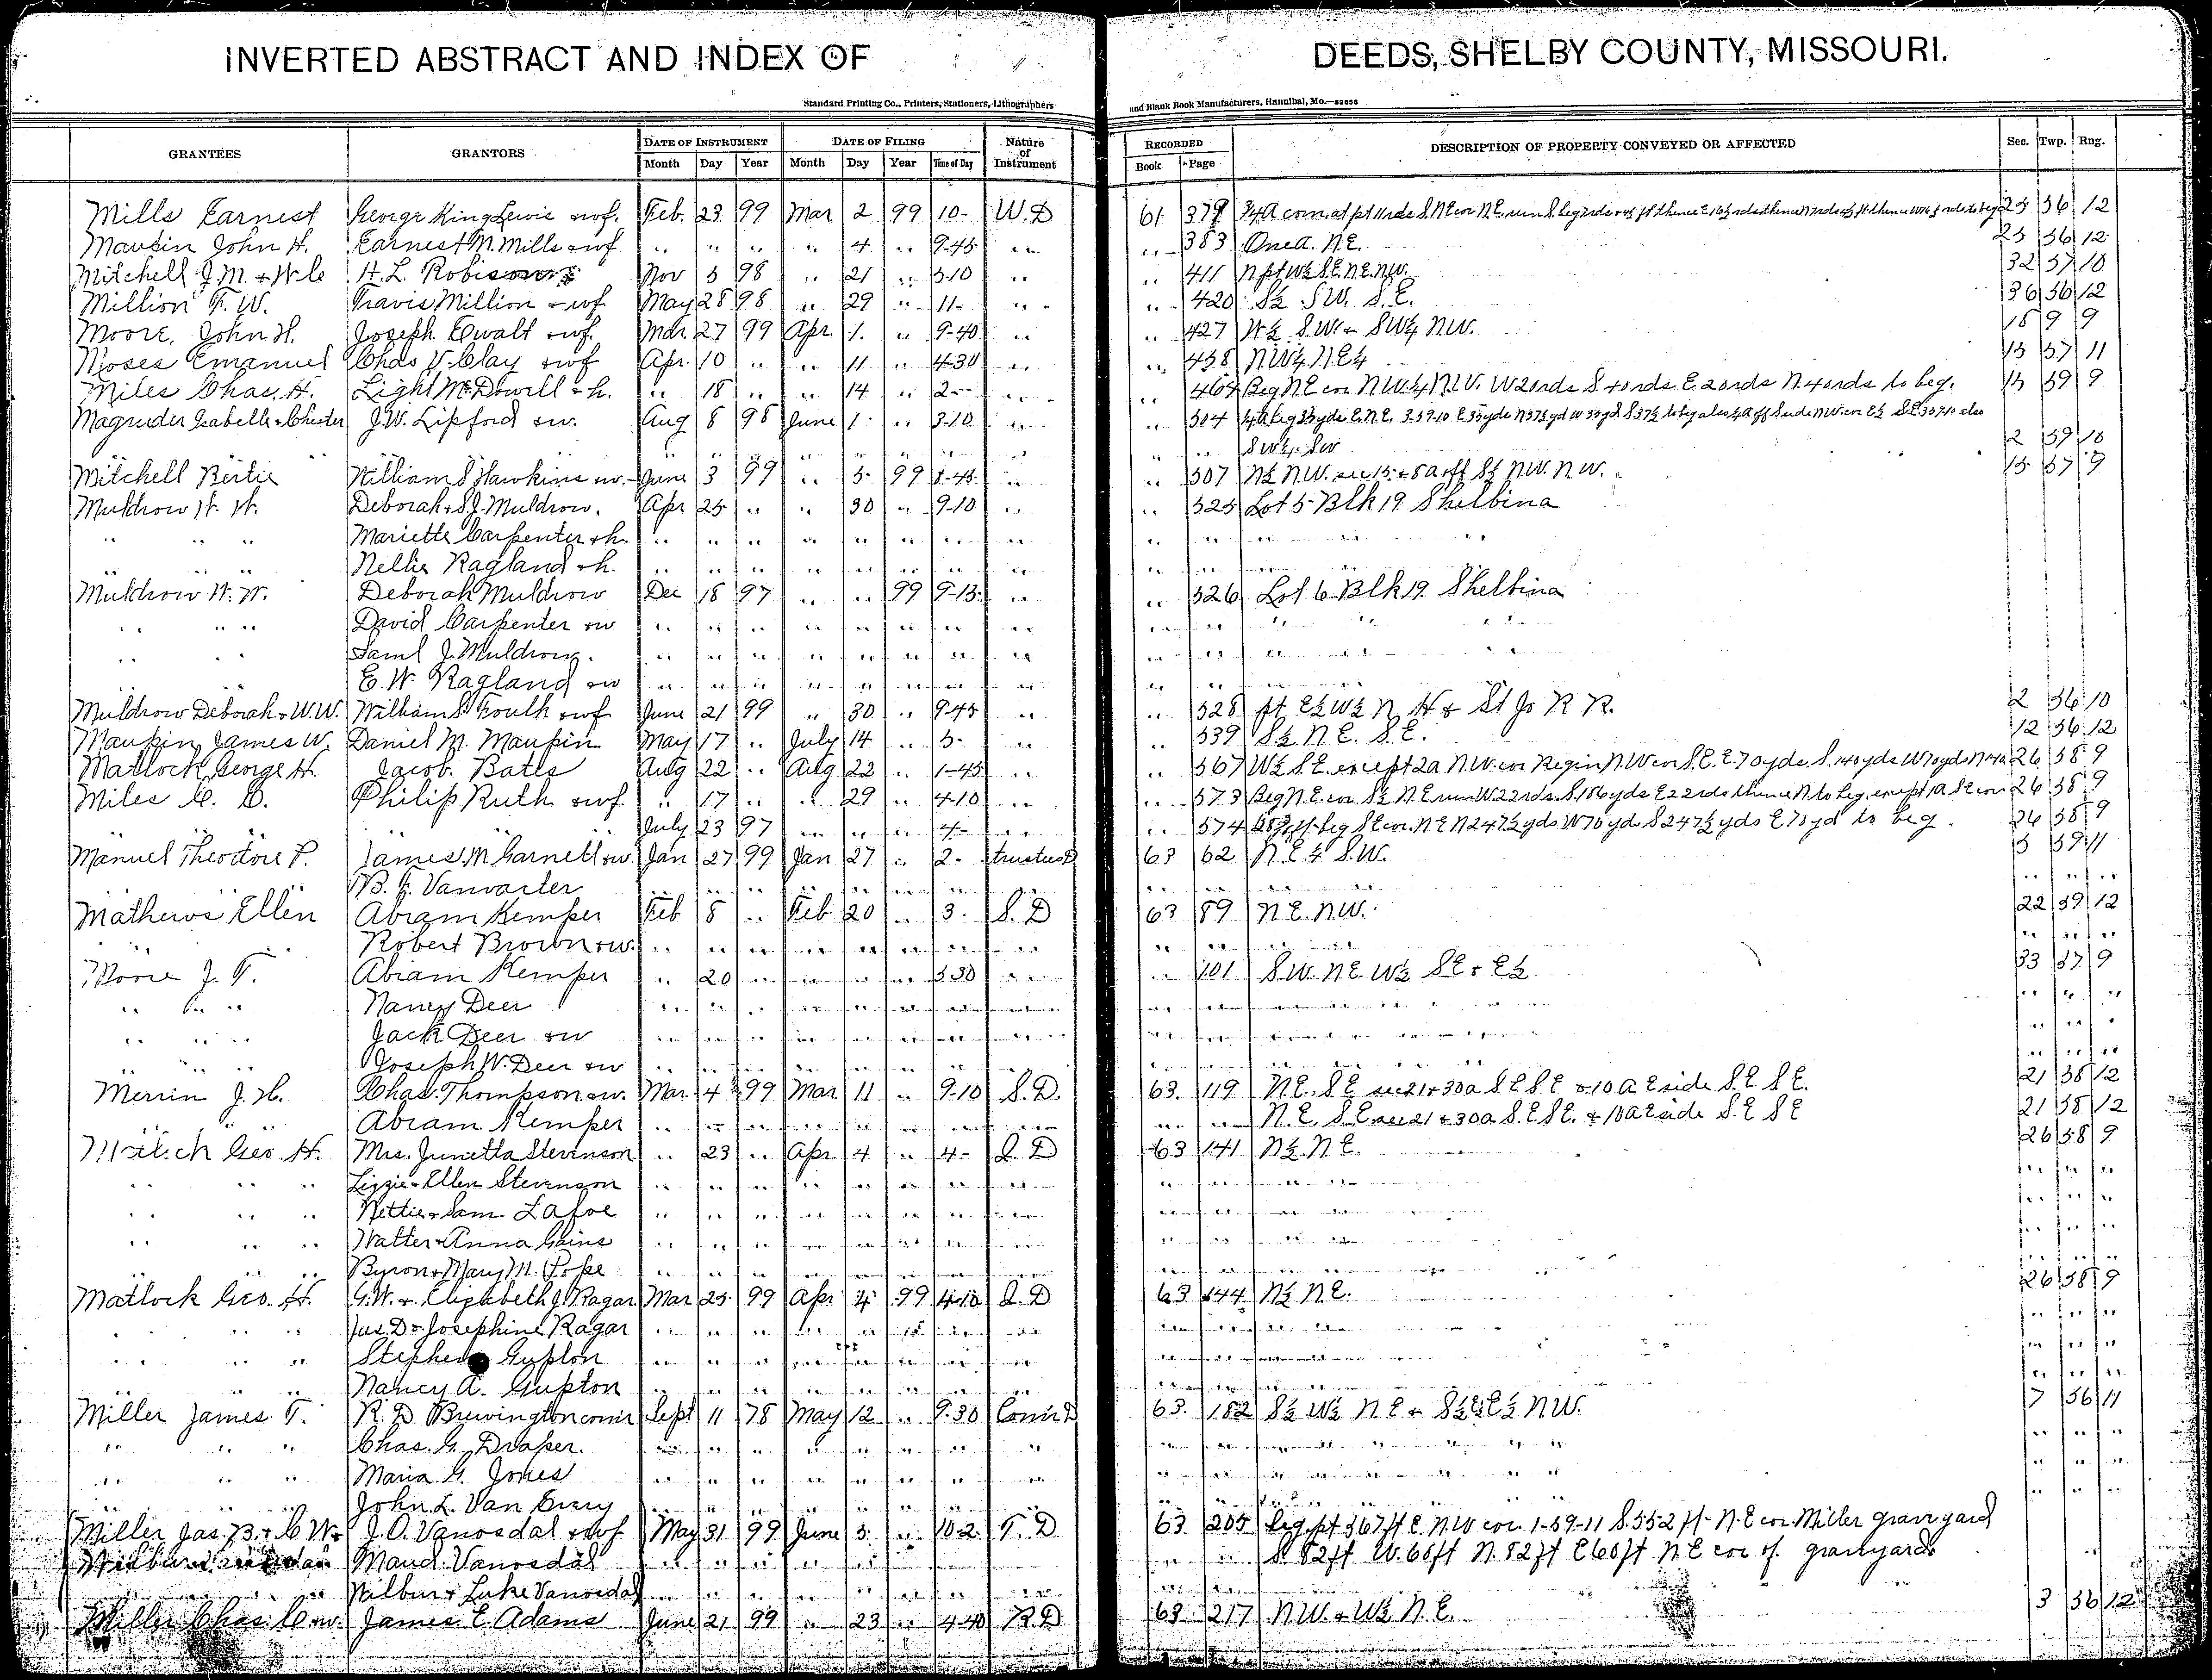 INVERTED ABSTRACT AND INDEX OF DEEDS, SHELBY COUNTY, MISSOURI.
Standard Printing Co., Printers, Stationers, Lithographers and Blank Book Manufacturers, Hannibal, Mo.—52856
GRANTEES GRANTORS DATE OF INSTRUMENT DATE OF FILING Nature of Instrument RECORDED DESCRIPTION OF PROPERTY CONVEYED OR AFFECTED Sec. Twp. Rng.
Month Day Year Month Day Year Time of Day Book Page
Mills Earnest George King Lewis & wf. Feb. 23 99 Mar 2 99 10- W.D 61 379 23 56 12
Maupin John H. Earnest M. Mills & wf .. .. .. .. 4 .. 9-45 .. .. 383 One a. N.E. 23 56 12
Mitchell J.M. & H. L. Robison Nov 5 98 .. 21 .. 3-10 .. .. 411 N pt W½ S.E. N.E. N.W. 32 57 10
Million F. W. Travis Million & wf May 28 98 .. 29 .. 11- .. .. 420 S½ S.W. S.E. 36 56 12
Moore, John H. Joseph Ewalt & wf. Mar. 27 99 Apr 1. .. 9-40 .. .. 427 W½ S.W. & SW¼ N.W. 18 9 9
Moses Emanuel Chas V. Clay & wf Apr. 10 .. .. 11 .. 4-30 .. .. 458 N.W¼ N.E¼ 13 57 11
Miles Chas. H. Light McDowell & h. .. 18 .. .. 14 .. 2- .. .. 464 Beg N.E. cor N.W.¼ N.W. W 20rds S 40rds E 20rds N 40rds to beg. 59 9
Magruder Isabelle & Chester J.W. Lipford & w. Aug 8 98 June 1 .. 3-10 .. .. 504
SW¼ SW 2 59 10
Mitchell Bertie William S Hawkins & w. June 3 99 .. 5 99 1-45 .. .. 507 N½ N.W. sec 15 & 8a off S½ N.W. N.W. 15 57 9
Muldrow W. W. Deborah & S.J. Muldrow. Apr 25 .. .. 30 .. 9-10 .. .. 525 Lot 5 Blk 19 Shelbina
.. .. .. Mariette Carpenter & h. .. .. .. .. .. .. .. ..
.. .. .. Nellie Ragland & h. .. .. .. .. .. .. .. ..
Muldrow W. W. Deborah Muldrow Dec 18 97 .. .. 99 9-15 .. .. 526 Lot 6 Blk 19 Shelbina
.. .. .. David Carpenter & w .. .. .. .. .. .. .. ..
.. .. .. Saml J. Muldrow. .. .. .. .. .. .. .. ..
.. .. .. E. W. Ragland & w .. .. .. .. .. .. .. ..
Muldrow Deborah & W.W. William S. Foulk & wf June 21 99 .. 30 .. 9-45 .. .. 528 pt E½ W½ N H & St. Jo R R. 2 56 10
Maupin, James W. Daniel M. Maupin May 17 .. July 14 .. 5- .. .. 539 S½ N.E. S.E. 12 56 12
Matlock George H. Jacob Bates Aug 22 .. Aug 22 .. 1-45 .. .. 567 W½ S.E. except 2a N.W. cor Begin N.W cor S.E. E. 70yds. S. 140yds W 70yds N 140 26 58 9
Miles C. D. Philip Ruth & wf. .. 17 .. .. 29 .. 4-10 .. .. 573 Beg N.E. cor. S½ N.E run W 22rds. S. 186yds E 22rds thence N to beg. except 1a SE cor 26 58 9
.. .. July 23 97 .. .. .. 4- .. .. 574 beg SE cor. N.E N 247½yds W 70yds S 247½yds E 70yd to beg. 26 58 9
Manuel Theodore P. James M Garnett & w. Jan 27 99 Jan 27 .. 2- trustees D 63 62 N.E.¼ S.W. 3 59 11
.. .. B. F. Vanvacter .. .. .. .. .. .. .. ..
Mathews Ellen Abram Kemper Feb 8 .. Feb 20 .. 3. S. D 63 89 N.E. N.W. 22 59 12
.. .. Robert Brown & w. .. .. .. .. .. .. .. ..
Moore J. T. Abram Kemper .. 20 .. .. .. .. 3.30 .. .. 101 S.W. N.E. W½ S.E. & E½ 33 57 9
.. .. .. Nancy Deer .. .. .. .. .. .. .. ..
.. .. .. Jack Deer & w .. .. .. .. .. .. .. ..
.. .. .. Joseph W. Deer & w .. .. .. .. .. .. .. ..
Merrin J. H. Chas. Thompson & w. Mar 4 99 Mar 11 .. 9-10 S.D. 63. 119 N.E. S.E sec 21 & 30a S.E S.E & 10 A E side S.E S.E. 21 58 12
.. .. Abram Kemper .. .. .. .. .. .. .. .. N.E. S.E sec 21 & 30a S.E S.E. & 10a E side S.E S.E 21 58 12
Matlock Geo. H. Mrs. Junetta Stevenson .. 23 .. Apr 4 .. 4- Q. D 63 141 N½ N.E. 26 58 9
.. .. .. Lizzie & Ellen Stevenson .. .. .. .. .. .. .. ..
.. .. .. Nettie & Sam. Lafoe .. .. .. .. .. .. .. ..
.. .. .. Walter & Anna Gains .. .. .. .. .. .. .. ..
.. .. .. Byron & Mary M. Pope .. .. .. .. .. .. .. ..
Matlock Geo. H. G.W. & Elizabeth J. Ragar Mar 25 99 Apr 4 99 4-10 Q. D 63 144 N½ N.E. 26 58 9
.. .. .. Jas. D & Josephine Ragar .. .. .. .. .. .. .. ..
.. .. .. Stephen Gupton .. .. .. .. .. .. .. ..
.. .. .. Nancy A. Gupton .. .. .. .. .. .. .. ..
Miller James T. R. D. Brewington comr Sept 11 78 May 12 .. 9.30 Comr D 63. 182 S½ W½ N.E. & S½ E½ N.W. 7 56 11
.. .. .. Chas. G. Draper. .. .. .. .. .. .. .. ..
.. .. .. Maria G. Jones .. .. .. .. .. .. .. ..
.. .. .. John L. Van Every .. .. .. .. .. .. .. ..
Miller Jas. B. & C W. J. O. Vanosdal & wf May 31 99 June 5. .. 10.2 T. D 63 205 beg pt 367ft E. N.W cor 1-59-11 S. 552 ft. N.E cor. Miller graveyard
Maud Vanosdal .. .. .. .. .. .. .. .. S. 82ft W. 60ft N. 82ft E 60ft N E cor of graveyard
Wilbur & Luke Vanosdal .. .. .. .. .. .. .. ..
Miller Chas. C & w. James E Adams June 21 99 .. 23 .. 4-40 R.D 63 217 N.W. & W½ N.E. 3 56 12